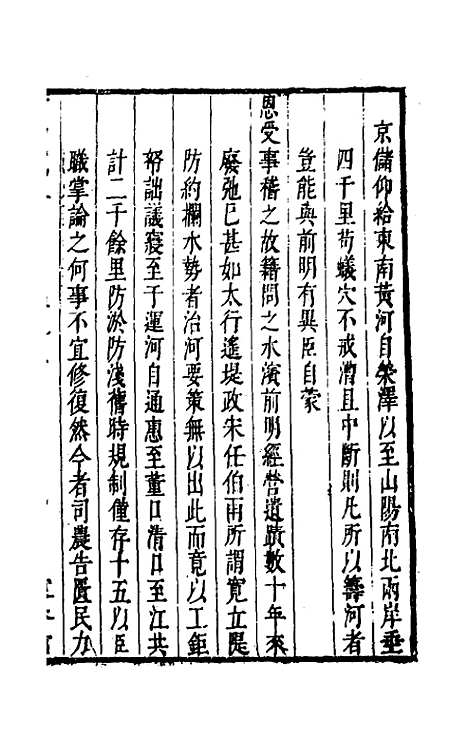 京儲仰給東南黃河自滎澤以至山陽南北兩岸垂
四千里苟蟻穴不戒漕且中斷則凡所以籌河者
豈能與前明有異臣自蒙
恩受事稽之故籍問之水濱前明經營遺蹟數十年來
廢弛已甚如太行遙堤政宋任伯雨所謂寬立隄
防約攔水勢者治河要策無以出此而竟以工鉅
帑詘議寢至于運河自通惠至董口清口至江共
計二千餘里防淤防淺舊時規制僅存十五以臣
職掌論之何事不宜修復然今者司農告匱民力